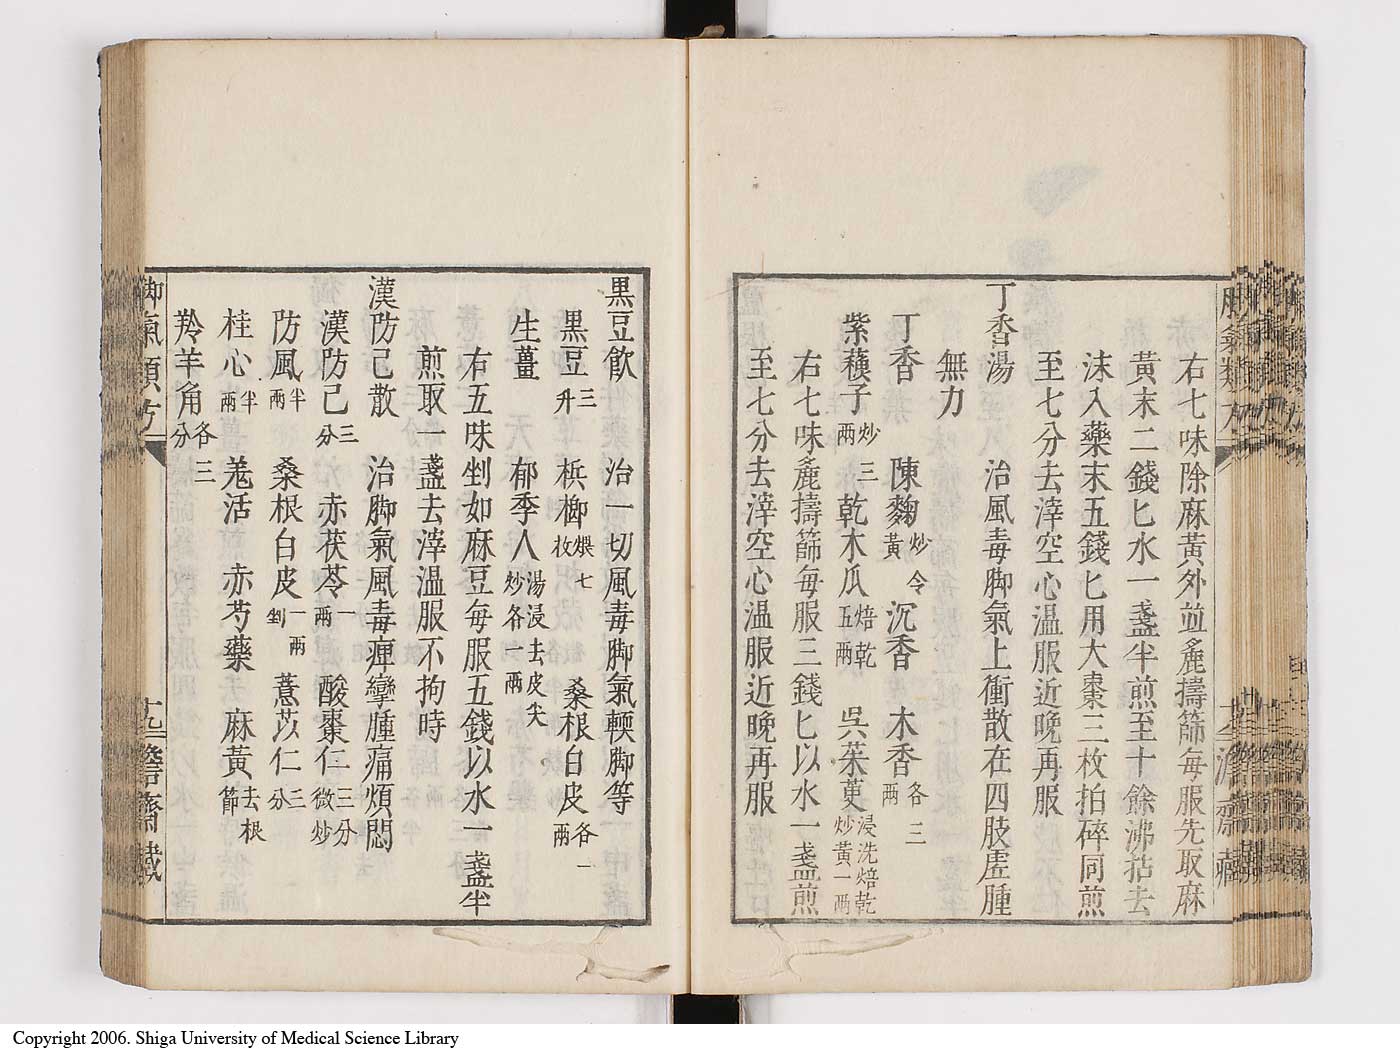 右七味除麻黃外並麄擣篩每服先取麻
黃末二錢匕水一盞半煎至十餘沸掠去
沫入藥末五錢匕用大棗三枚拍碎同煎
至七分去滓空心温服近晚再服
丁香湯　治風毒脚氣上衝散在四肢虗腫
無力
丁香　陳麴炒令黃　沉香　木香各三兩
紫蘓子炒三兩　乾木瓜焙乾五兩　吳茱萸浸洗焙乾炒黃一兩
右七味麄擣篩每服三錢匕以水一盞煎
至七分去滓空心温服近晚再服
黒豆飲　治一切風毒脚氣輭脚等
黒豆三升　梹榔煨七枚　桑根白皮各一兩
生薑　郁李人湯浸去皮尖炒各一兩
右五味剉如麻豆每服五錢以水一盞半
煎取一盞去滓温服不拘時
漢防己散　治脚氣風毒痺攣腫痛煩悶
漢防己三分　赤茯苓一兩　酸棗仁三分微炒
防風半兩　桑根白皮一兩剉　薏苡仁三分
桂心半兩　羗活　赤芍藥　麻黃去根節
羚羊角各三分
脚氣類方
十九
濟齋藏